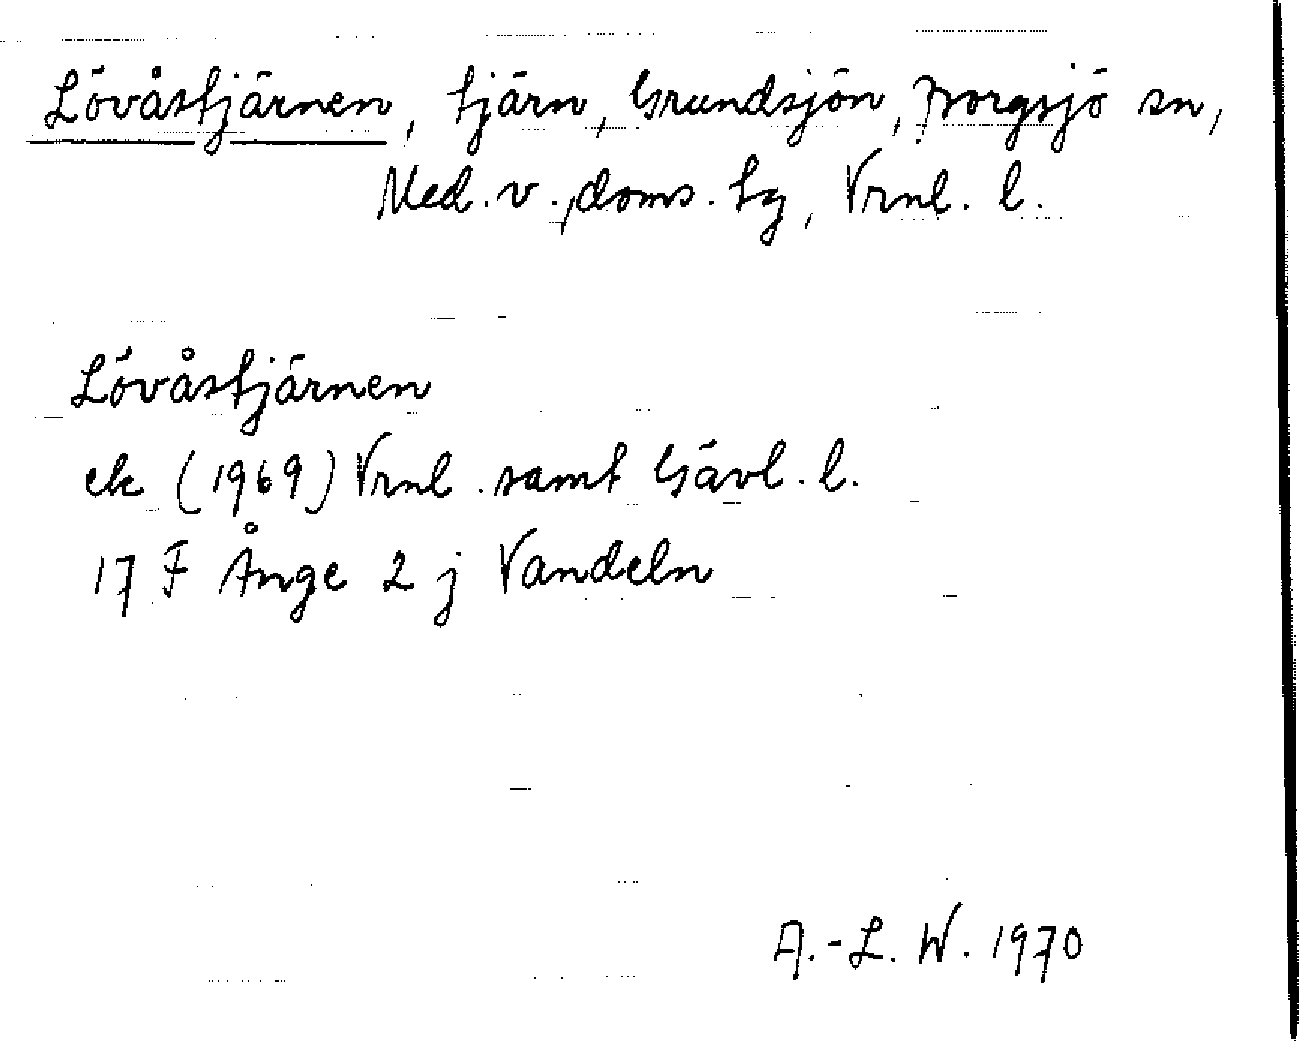 Lövåstjärnen, tjärn, Grundsjön, Borgsjö sn,
Med. v., doms. tg, Vrnl. l.
Lövåstjärnen
ek (1969) Vrnl. samt Gävl. l.
17 F Ånge 2 j Vandeln
A.-L. W. 1970